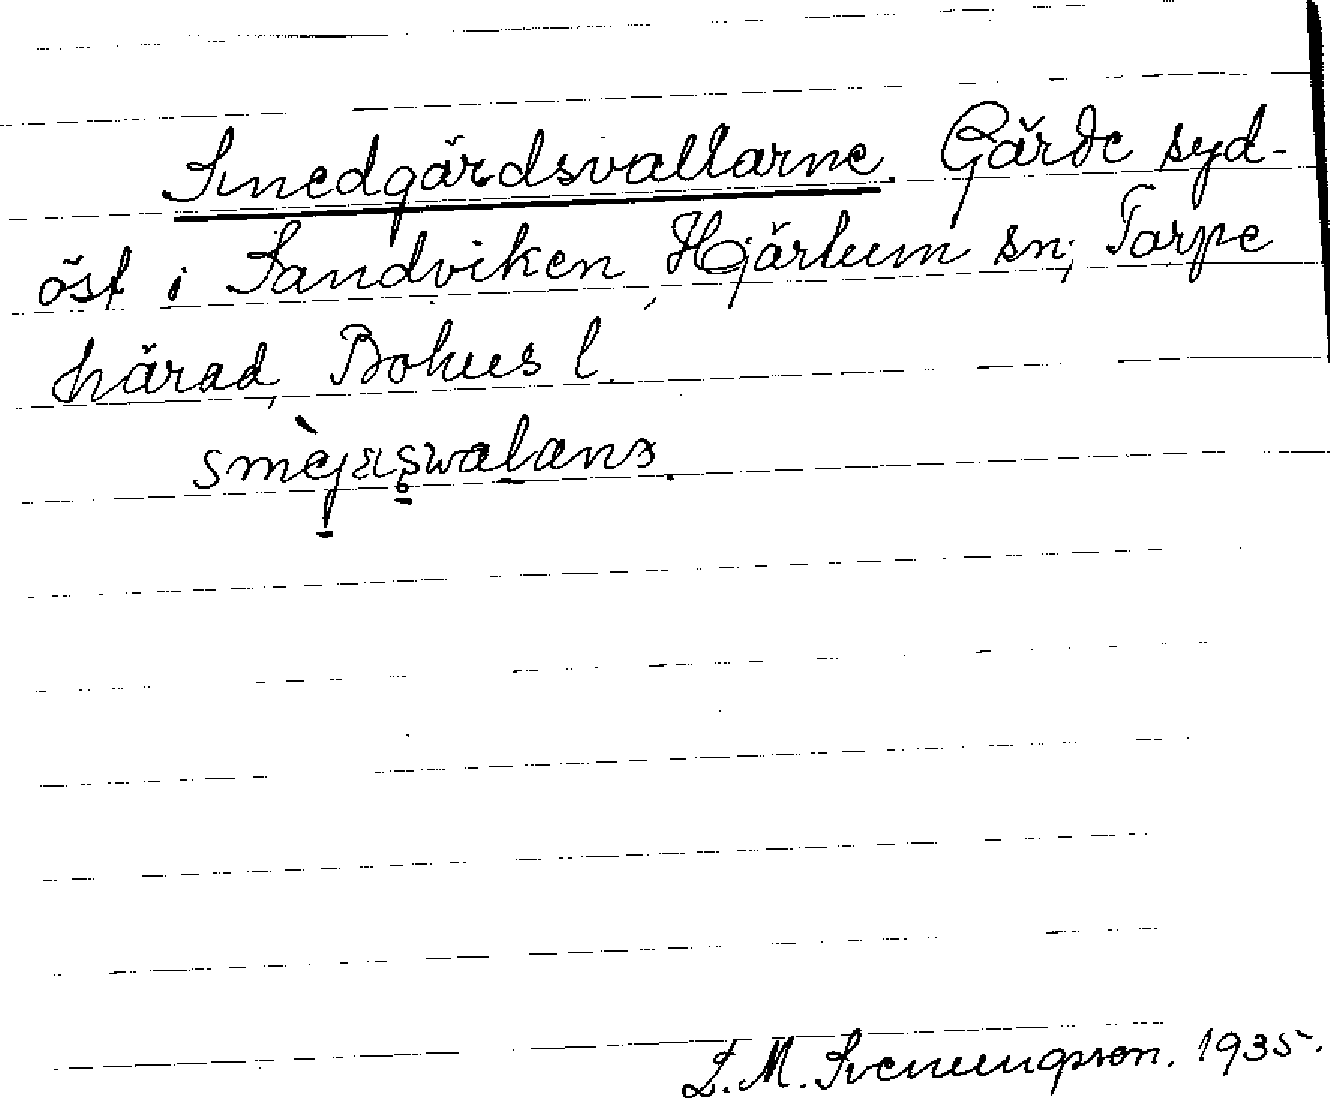 Smedgärdsvallarne. Gärde syd-
öst i Sandviken, Hjärtum sn, Torpe
härad, Bohus l.
L. M. Svenungsson. 1935.